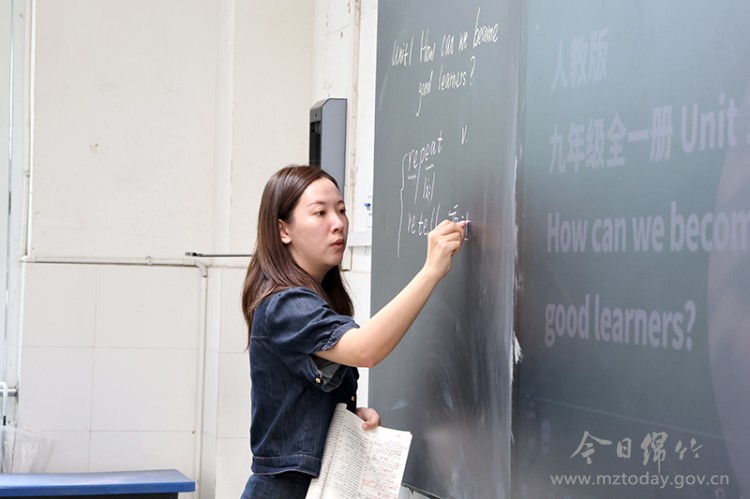 Unit1 How can we become
good learners?
repeat v.
retell
人教版
九年级全一册 Unit
How can we becom
good learners?
今日绵竹
www.mztoday.gov.cn